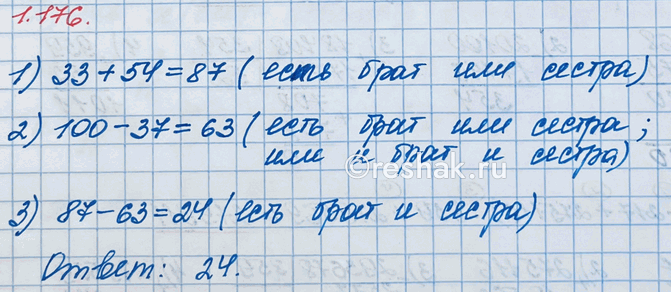 1.176.
1) 33 + 54 = 87 ( есть брат или сестра)
2) 100 - 37 = 63 ( есть брат или сестра ;
или и брат и сестра)
reshak.ru
3) 87 - 63 = 24 ( есть брат и сестра)
Ответ: 24.